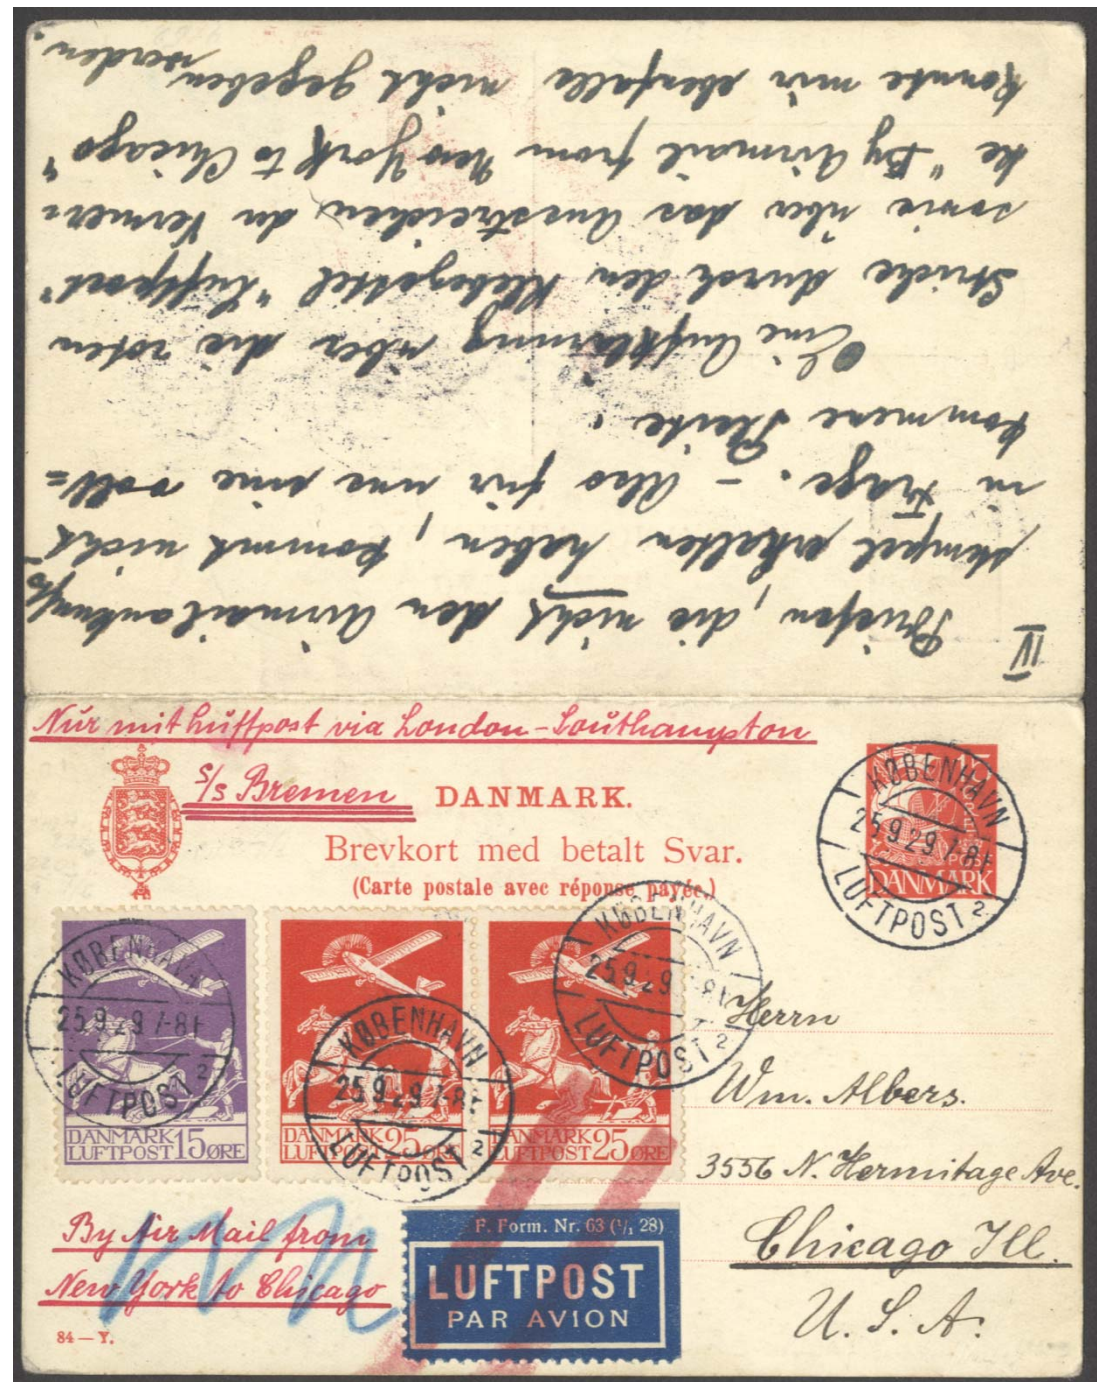 IV
Briefen, die nicht den Airmailankunfts
stempel erhalten haben, kommt nicht
in Frage. – Also für uns eine voll=
kommene Pleite.
Eine Aufklärung über die roten
Striche durch den Klebezettel "Luftpost"
sowie über das Ausstreichen der Vermer=
ke "By Airmail from New York to Chicago"
konnte mir ebenfalls nicht gegeben
werden.
Nur mit Luftpost via London-Southampton
S/s Bremen
DANMARK.
Brevkort med betalt Svar.
(Carte postale avec réponse payée.)
DANMARK
KØBENHAVN
25.9.29.7-8F
LUFTPOST 2
KØBENHAVN
25.9.29.7-8F
LUFTPOST 2
DANMARK
LUFTPOST 15 ØRE
KØBENHAVN
25.9.29.7-8F
LUFTPOST 2
DANMARK
LUFTPOST 25 ØRE
KØBENHAVN
25.9.29.7-8F
LUFTPOST 2
DANMARK
LUFTPOST 25 ØRE
Herrn
Wm. Albers.
3556 N. Hermitage Ave.
Chicago Ill.
U. S. A.
By Air Mail from
New York to Chicago
84 — Y.
F. Form. Nr. 63 (1/3 28)
LUFTPOST
PAR AVION